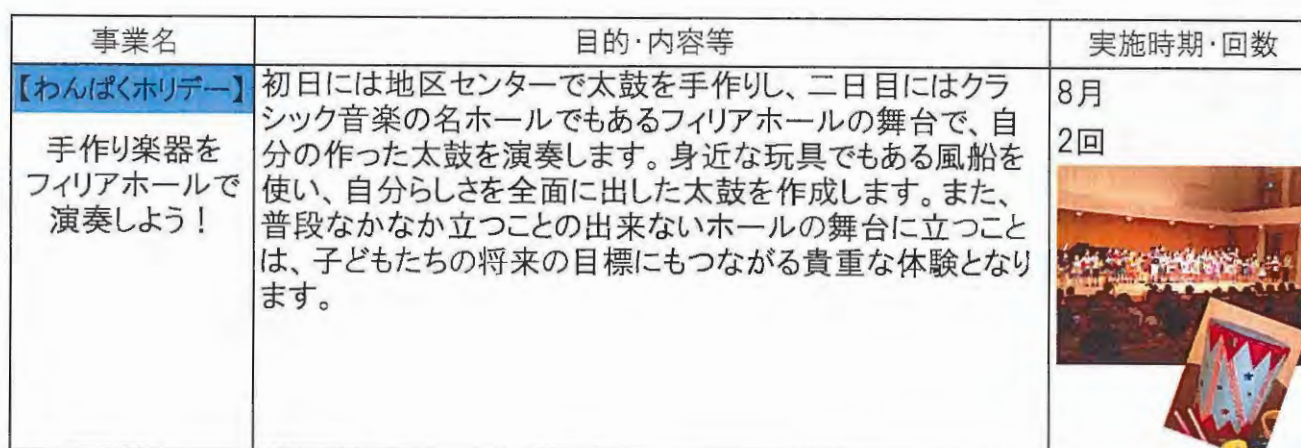 事業名
目的・内容等
実施時期・回数
【わんぱくホリデー】
手作り楽器を
フィリアホールで
演奏しよう！
初日には地区センターで太鼓を手作りし、二日目にはクラ
シック音楽の名ホールでもあるフィリアホールの舞台で、自
分の作った太鼓を演奏します。身近な玩具でもある風船を
使い、自分らしさを全面に出した太鼓を作成します。また、
普段なかなか立つことの出来ないホールの舞台に立つこと
は、子どもたちの将来の目標にもつながる貴重な体験となり
ます。
8月
2回